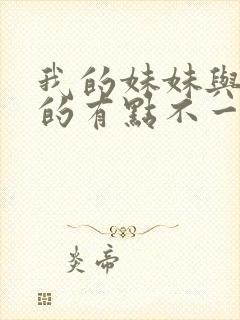 我的妹妹與
的有點不一
炎帝